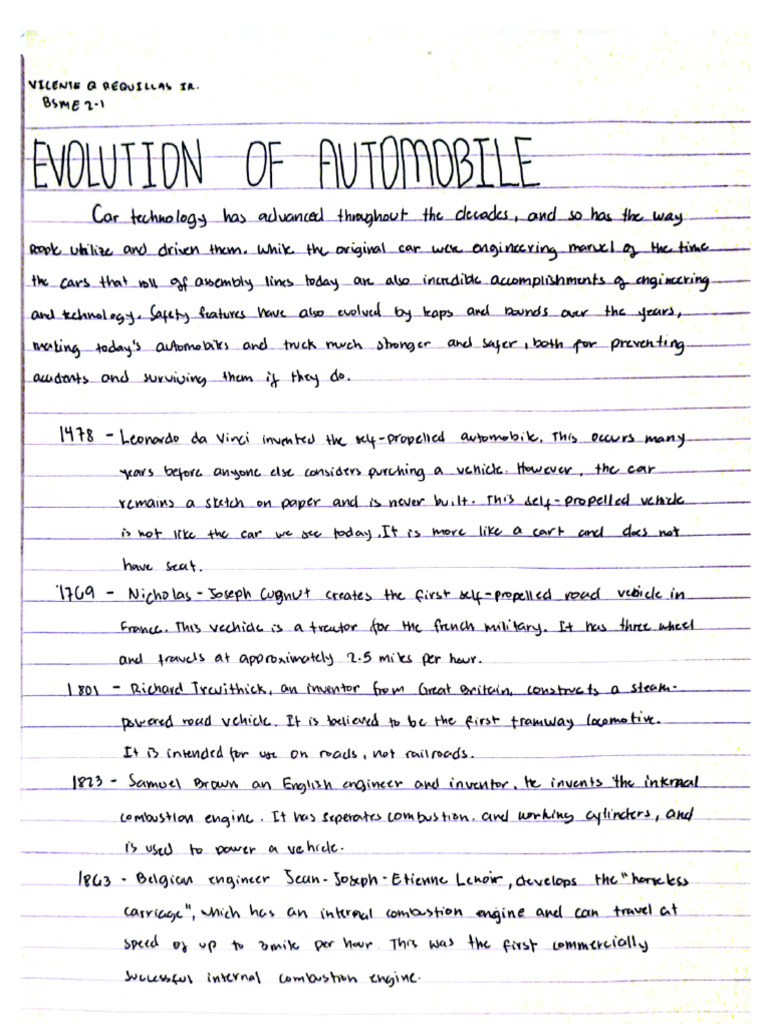 VICENTE Q REQUILLAS JR.
BSME 2-1
EVOLUTION OF AUTOMOBILE
Car technology has advanced throughout the decades, and so has the way
people utilize and driven them. While the original car were engineering marvel of the time
the cars that roll off assembly lines today are also incredible accomplishments of engineering
and technology. Safety features have also evolved by leaps and bounds over the years,
making today's automobiles and truck much stronger and safer, both for preventing
accidents and surviving them if they do.
1478 - Leonardo da Vinci invented the self-propelled automobile. This occurs many
years before anyone else considers purching a vehicle. However, the car
remains a sketch on paper and is never built. This self-propelled vehicle
is not like the car we see today. It is more like a cart and does not
have seat.
1769 - Nicholas-Joseph Cugnut creates the first self-propelled road vehicle in
France. This vechicle is a treator for the french military. It has three wheel
and travels at approximately 2.5 miles per hour.
1801 - Richard Trevithick, an inventor from Great Britain, constructs a steam-
powered road vehicle. It is believed to be the first tramway locomotive.
It is intended for use on roads, not railroads.
1823 - Samuel Brown an English engineer and inventor. He invents the internal
combustion engine. It has seperates combustion. and working cylinders, and
is used to power a vehicle.
1863 - Belgian engineer Jean-Joseph-Etienne Lenoir, develops the "horseless
carriage", which has an internal combustion engine and can travel at
speed of up to 3mile per hour. This was the first commercially
successful internal combustion engine.